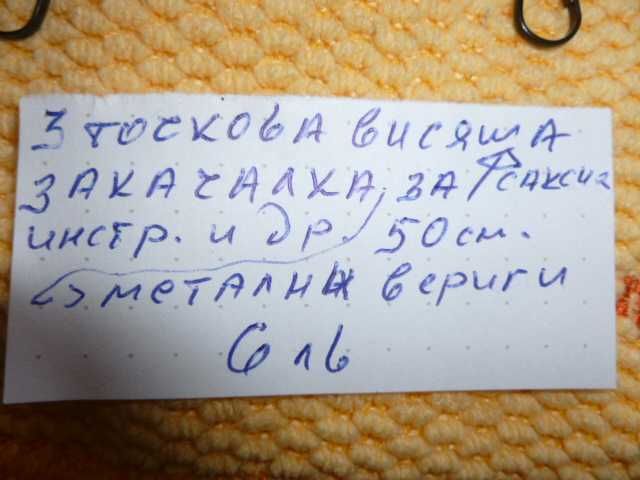 3 точкова висяща
закачалка, за саксия
инстр. и др. 50 см.
с метални вериги
6 лв